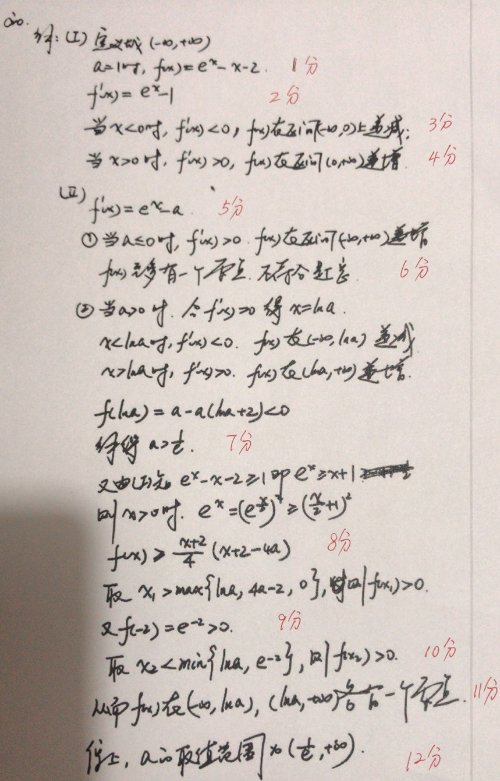 20.
解:(I) 定义域(-∞,+∞)
a=1时, f(x)=eˣ-x-2. 1分
f'(x)=eˣ-1 2分
当x<0时, f'(x)<0, f(x)在区间(-∞,0)上递减; 3分
当x>0时, f'(x)>0, f(x)在区间(0,+∞)递增. 4分
(II)
f'(x)=eˣ-a. 5分
①当a≤0时, f'(x)>0. f(x)在区间(-∞,+∞)递增
f(x)至多有一个零点. 不符合题意. 6分
②当a>0时. 令f'(x)=0 得 x=lna.
x<lna时, f'(x)<0. f(x)在(-∞,lna) 递减
x>lna时, f'(x)>0. f(x)在(lna,+∞)递增.
f(lna)=a-a(lna+2)<0
解得 a>1/e. 7分
又由(I)知 eˣ-x-2≥-1即eˣ≥x+1
则x>0时. eˣ=(e^(x/2))²≥(x/2+1)²
f(x)≥(x+2)/4 (x+2-4a) 8分
取 x₁>max{lna, 4a-2, 0}, 则f(x₁)>0.
又f(-2)=e⁻²>0. 9分
取 x₂<min{lna, e-2}, 则f(x₂)>0. 10分
从而f(x)在(-∞,lna), (lna,+∞)各有一个零点. 11分
综上, a的取值范围为(1/e,+∞). 12分